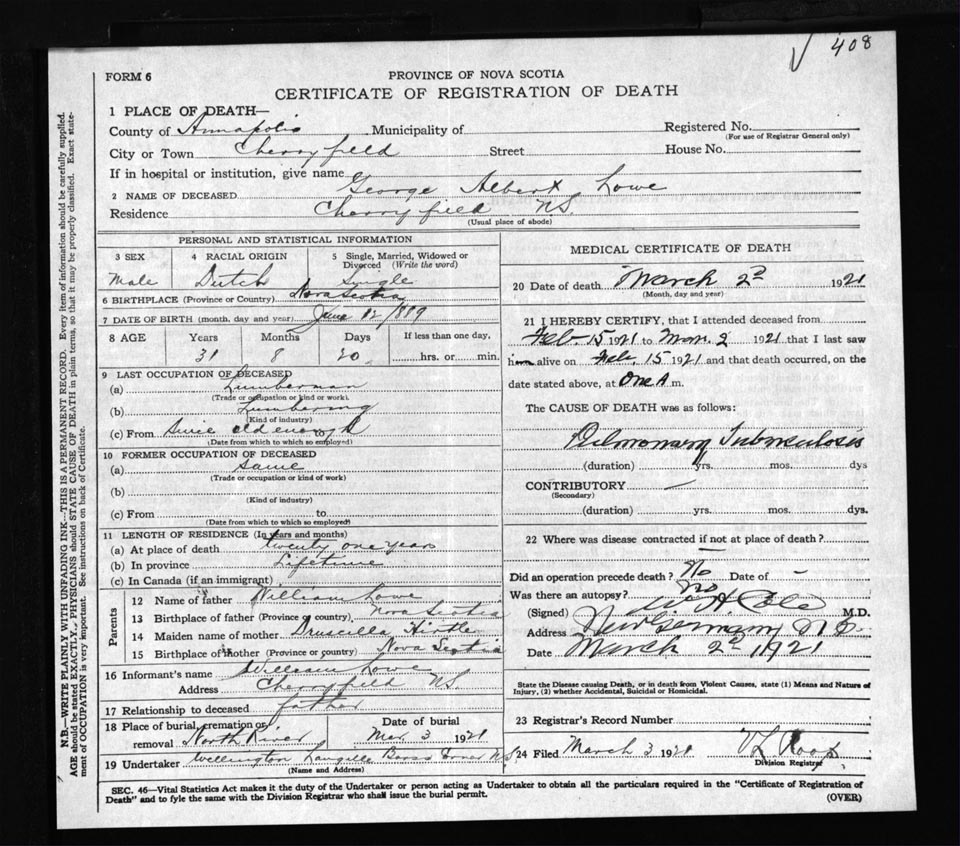 √ 408
FORM 6
PROVINCE OF NOVA SCOTIA
CERTIFICATE OF REGISTRATION OF DEATH
1 PLACE OF DEATH—
County of Annapolis Municipality of
Registered No.
(For use of Registrar General only)
City or Town Cherryfield Street House No.
If in hospital or institution, give name
2 NAME OF DECEASED George Albert Lowe
Residence Cherryfield N.S.
(Usual place of abode)
PERSONAL AND STATISTICAL INFORMATION
3 SEX 4 RACIAL ORIGIN 5 Single, Married, Widowed or Divorced (Write the word)
Male Dutch Single
6 BIRTHPLACE (Province or Country) Nova Scotia
7 DATE OF BIRTH (month, day and year) June 12/1889
8 AGE Years Months Days If less than one day,
31 8 20 hrs. or min.
9 LAST OCCUPATION OF DECEASED
(a) Lumberman
(Trade or occupation or kind or work)
(b) Lumbering
(Kind of industry)
(c) From Since old enough to
(Date from which to which employed)
10 FORMER OCCUPATION OF DECEASED
(a) Same
(Trade or occupation or kind of work)
(b)
(Kind of industry)
(c) From to
(Date from which to which so employed)
11 LENGTH OF RESIDENCE (In years and months)
(a) At place of death twenty one years
(b) In province Lifetime
(c) In Canada (if an immigrant)
Parents
12 Name of father William Lowe
13 Birthplace of father (Province or country) Nova Scotia
14 Maiden name of mother Druscilla Hirtle
15 Birthplace of mother (Province or Country) Nova Scotia
16 Informant's name William Lowe
Address Cherryfield N.S.
17 Relationship to deceased father
18 Place of burial, cremation or removal North River
Date of burial Mar. 3 1921
19 Undertaker Wellington Langille N S
(Name and Address)
MEDICAL CERTIFICATE OF DEATH
20 Date of death March 2nd 1921
(Month, day and year)
21 I HEREBY CERTIFY, that I attended deceased from
Feb. 15 1921 to Mar. 2 1921 that I last saw
him alive on Feb. 15 1921 and that death occurred, on the
date stated above, at One A m.
The CAUSE OF DEATH was as follows:
Pulmonary Tuberculosis
(duration) yrs. mos. dys
CONTRIBUTORY —
(Secondary)
(duration) yrs. mos. dys.
22 Where was disease contracted if not at place of death?
—
Did an operation precede death? No Date of –
Was there an autopsy? No
(Signed) W. H. Cole M.D.
Address New Germany N.S.
Date March 2nd 1921
State the Disease causing Death, or in Death from Violent Causes, state (1) Means and Nature of
Injury, (2) whether Accidental, Suicidal or Homicidal.
23 Registrar's Record Number
24 Filed March 3 1921 V L Roop
Division Registrar
SEC. 46—Vital Statistics Act makes it the duty of the Undertaker or person acting as Undertaker to obtain all the particulars required in the "Certificate of Registration of
Death" and to fyle the same with the Division Registrar who shall issue the burial permit.
(OVER)
N.B.—WRITE PLAINLY WITH UNFADING INK—THIS IS A PERMANENT RECORD. Every item of information should be carefully supplied.
AGE should be stated EXACTLY. PHYSICIANS should STATE CAUSE OF DEATH in plain terms, so that it may be properly classified. Exact state-
ment of OCCUPATION is very important. See instructions on back of Certificate.